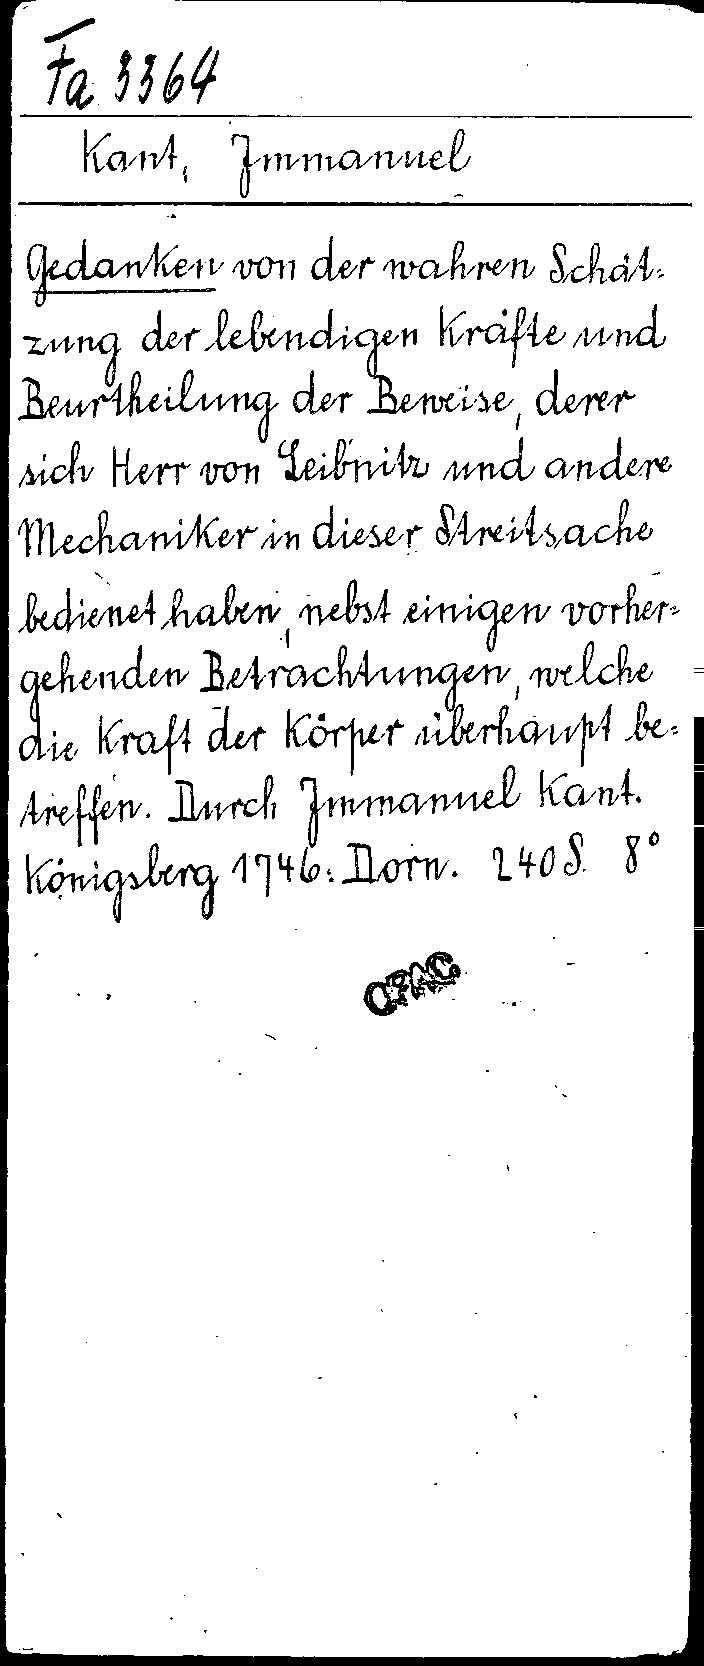 Fa 3364
Kant, Immanuel
Gedanken von der wahren Schät=
zung der lebendigen Kräfte und
Beurtheilung der Beweise, derer
sich Herr von Leibnitz und andere
Mechaniker in dieser Streitsache
bedienet haben, nebst einigen vorher=
gehenden Betrachtungen, welche
die Kraft der Körper überhaupt be=
treffen. Durch Immanuel Kant.
Königsberg 1746: Dorn. 240 S. 8°
OPAC